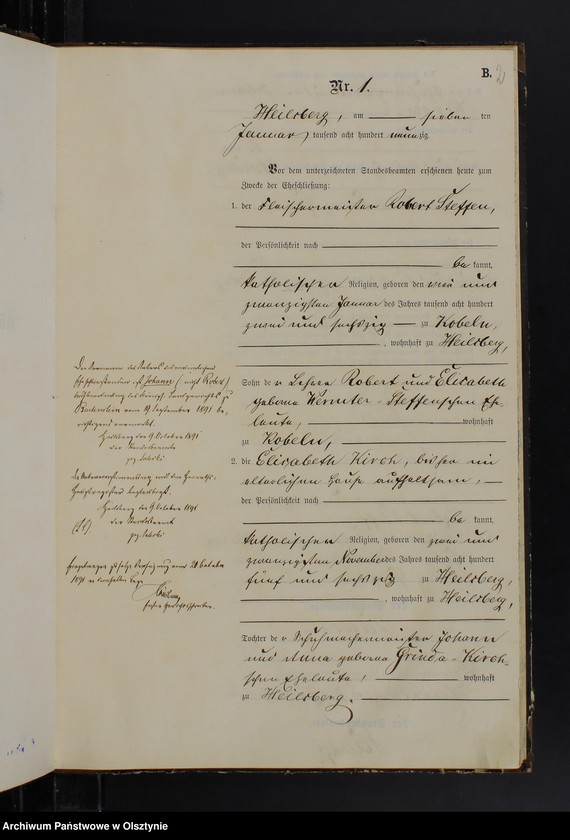 B. 2
Nr. 1.
Heilsberg, am sieben ten
Januar tausend acht hundert neunzig.
Vor dem unterzeichneten Standesbeamten erschienen heute zum
Zwecke der Eheschließung:
1. der Fleischermeister Robert Steffen,
der Persönlichkeit nach
be kannt,
katholischer Religion, geboren den vier und
zwanzigsten Januar des Jahres tausend acht hundert
zwei und sechszig zu Kobeln,
, wohnhaft zu Heilsberg,
Sohn der Lehrer Robert und Elisabeth
geborne Wermter-Steffenschen Ehe-
leute, wohnhaft
zu Kobeln,
2. die Elisabeth Kirch, bisher im
elterlichen Hause aufhaltsam,
der Persönlichkeit nach
be kannt,
katholischer Religion, geboren den zwei und
zwanzigsten November des Jahres tausend acht hundert
fünf und sechszig zu Heilsberg,
, wohnhaft zu Heilsberg,
Tochter der Schuhmachermeister Johann
und Anna geborne Grinda-Kirch-
schen Eheleute, wohnhaft
zu Heilsberg.
Der Vorname des Vaters des
ist Johann (nicht Robert)
des Königl. Landgerichts zu
Bartenstein vom 19 September 1891 be-
richtigend vermerkt.
Heilsberg den 9 October 1891
der Standesbeamte
gez.
Heilsberg den 9 October 1891
(LS) der Standesbeamte
gez.
Eingetragen zufolge Verfügung vom 28 October
1891
Archiwum Państwowe w Olsztynie